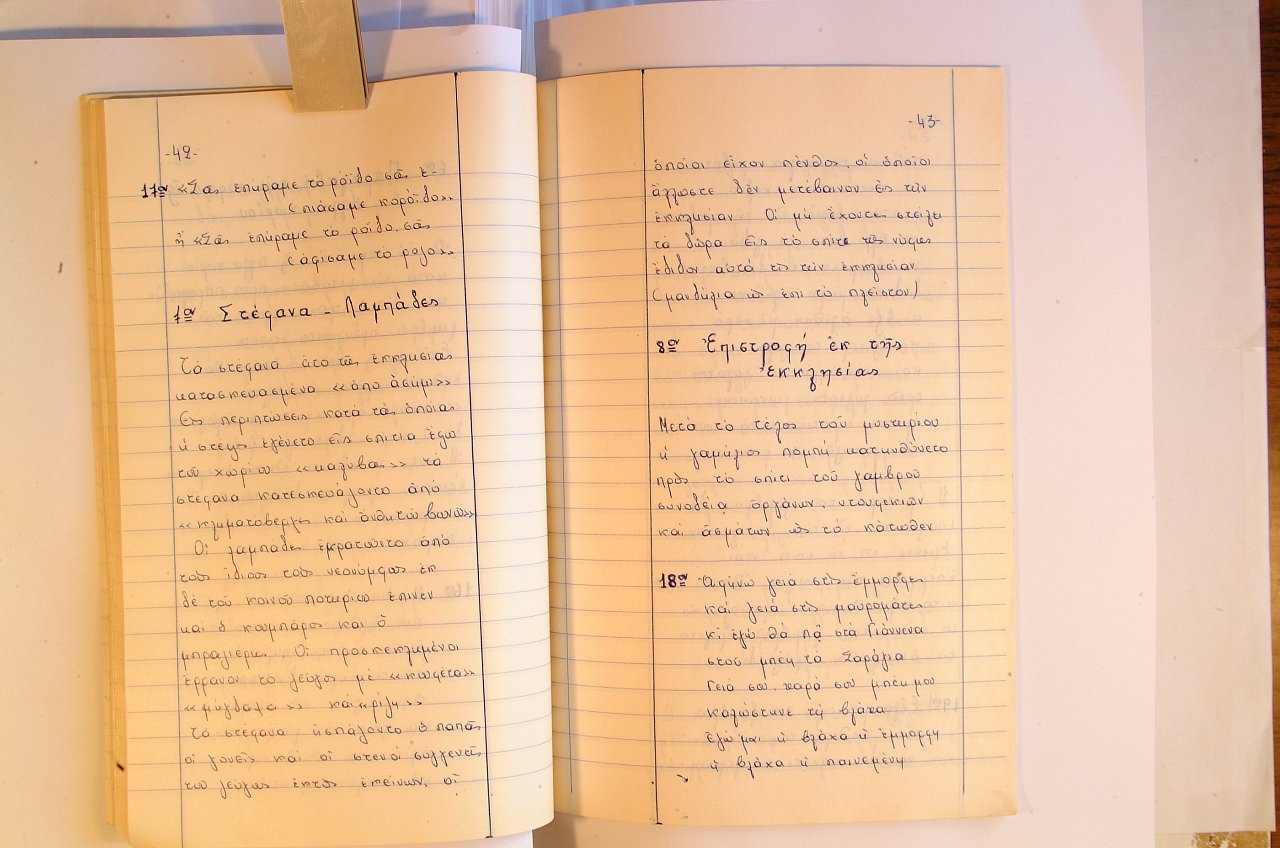 -42-
17ον «Σᾶς ἐπήραμε τὸ ρόϊδο σᾶς ἐ-
(πιάσαμε κορόϊδο»
ἤ «Σᾶς ἐπήραμε τὸ ρόϊδο σᾶς
(ἀφίσαμε τὸ ρολόϊ»
7ον Στέφανα - Λαμπάδες
Τὰ στέφανα ἦτο τῆς ἐκκλησίας
κατασκευασμένα «ἀπὸ ἀσήμι»
Εἰς περιπτώσεις κατὰ τὰς ὁποίας
ἡ στέψις ἐγένετο εἰς σπίτια ἔξω
τοῦ χωρίου «καλύβας» τὰ
στέφανα κατεσκευάζοντο ἀπὸ
«κληματόβεργες καὶ ἀνθη τῶν βουνῶν»
Οἱ λαμπάδες ἐκρατῶντο ἀπὸ
τοὺς ἰδίους τοὺς νεονύμφους ἐκ
δὲ τοῦ κοινοῦ ποτηρίου ἔπινεν
καὶ ὁ κουμπάρος καὶ ὁ
μπραζέρης. Οἱ προσκεκλημένοι
ἔρραινον τὸ ζεῦγος μὲ «κουφέτα»
«μύγδαλα» καὶ «ρίζι»
Τὰ στέφανα ἠσπάζοντο ὁ παπᾶς
οἱ γονεῖς καὶ οἱ στενοὶ συγγενεῖς
τοῦ ζεύγους ἐκτὸς ἐκείνων, οἱ
-43-
ὁποῖοι εἶχον πένθος, οἱ ὁποῖοι
ἄλλωστε δὲν μετέβαινον εἰς τὴν
ἐκκλησίαν. Οἱ μὴ ἔχοντες στείλει
τὰ δῶρα εἰς τὸ σπίτι τῆς νύφης
ἔδιδον αὐτὰ εἰς τὴν ἐκκλησίαν
(μανδήλια ὡς ἐπὶ τὸ πλεῖστον)
8ον Ἐπιστροφή ἐκ τῆς
Ἐκκλησίας
Μετὰ τὸ τέλος τοῦ μυστηρίου
ἡ γαμήλιος πομπὴ κατηυθύνετο
πρὸς τὸ σπίτι τοῦ γαμβροῦ
συνοδείᾳ ὀργάνων, ντουφεκιῶν
καὶ ἀσμάτων ὡς τὸ κάτωθεν
18ον Ἀφήνω γειά στὶς ἔμμορφες
καὶ γειά στὶς μαυρομάτες
κι ἐγὼ θὰ πᾶ στὰ Γιάννενα
στοῦ μπέη τὰ Σαράγια
Γειά σου, χαρά σου μπέη μου
Καλώστηνε τὴ βλάχα
Ἐγώ μαι ἡ βλάχα ἡ ἔμμορφη
ἡ βλάχα ἡ παινεμένη